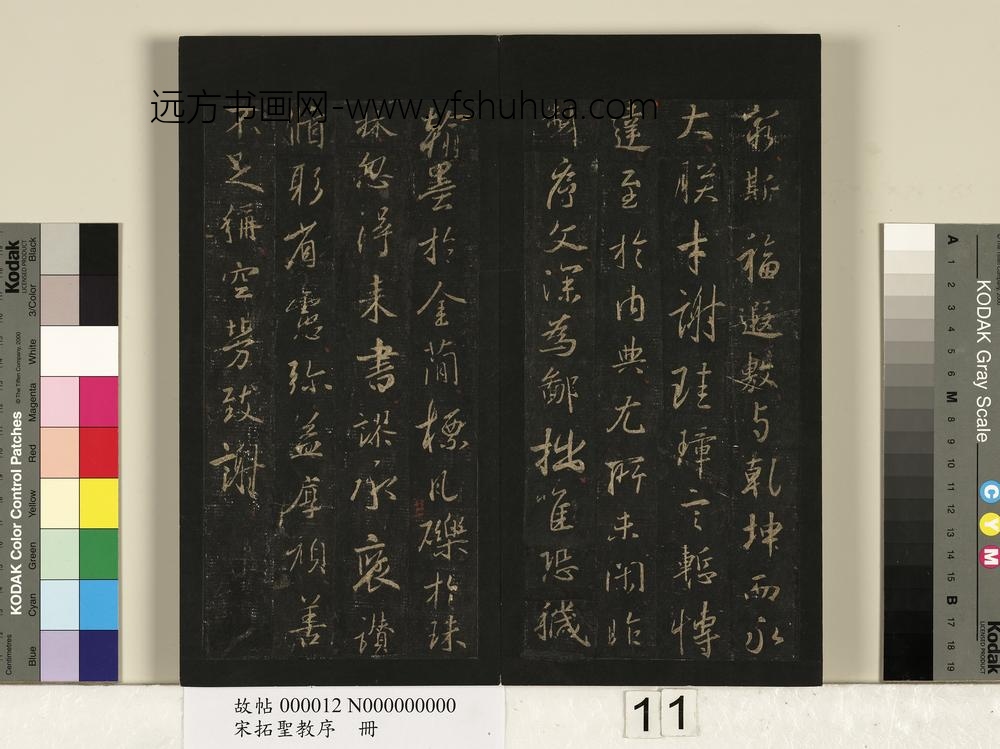 远方书画网-www.yfshuhua.com
窮斯福遐敷与乾坤而永
大朕才謝珪璋言慙博
達至於内典尤所未閑昨
製序文深為鄙拙唯恐穢
翰墨於金簡標瓦礫於珠
林忽得来書謬承褒讚
循躬省慮弥益厚顔善
不足稱空勞致謝
故帖 000012 N000000000
宋拓聖教序 冊
11
Kodak
LICENSED PRODUCT
KODAK Color Control Patches
© The Tiffen Company, 2000
Centimetres
Blue
Cyan
Green
Yellow
Red
Magenta
White
3/Color
Black
KODAK Gray Scale
A 1 2 3 4 5 6 M 8 9 10 11 12 13 14 15 B 17 18 19
C
Y
M
Kodak
LICENSED PRODUCT